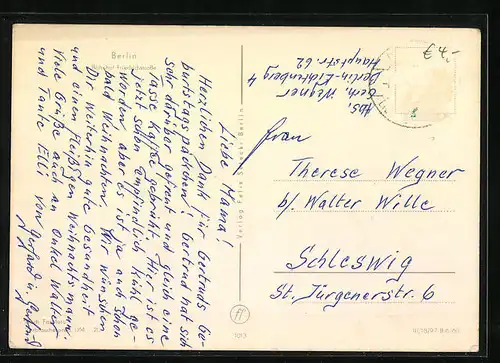 Berlin
Bahnhof Friedrichstraße
Liebe Mama!
Herzlichen Dank für Gertruds Ge-
burtstagspäckchen! Gertrud hat sich
sehr darüber gefreut und gleich eine
Tasse Kaffee gebrüht. Hier ist es
jetzt schon empfindlich kühl ge-
worden, aber es ist ja auch schon
bald Weihnachten. Wir wünschen
Dir weiterhin gute Gesundheit
und einen fleißigen Weihnachtsmann.
Viele Grüße auch an Onkel Walter
und Tante Elli von Gerhard u. Gertrud
Verlag Felix Setecki Berlin
Abs.
Gerh. Wegner
Berlin-Lichtenberg 4
Hauptstr. 62
£ 4,-
Frau
Therese Wegner
b/. Walter Wille
Schleswig
St. Jürgenerstr. 6